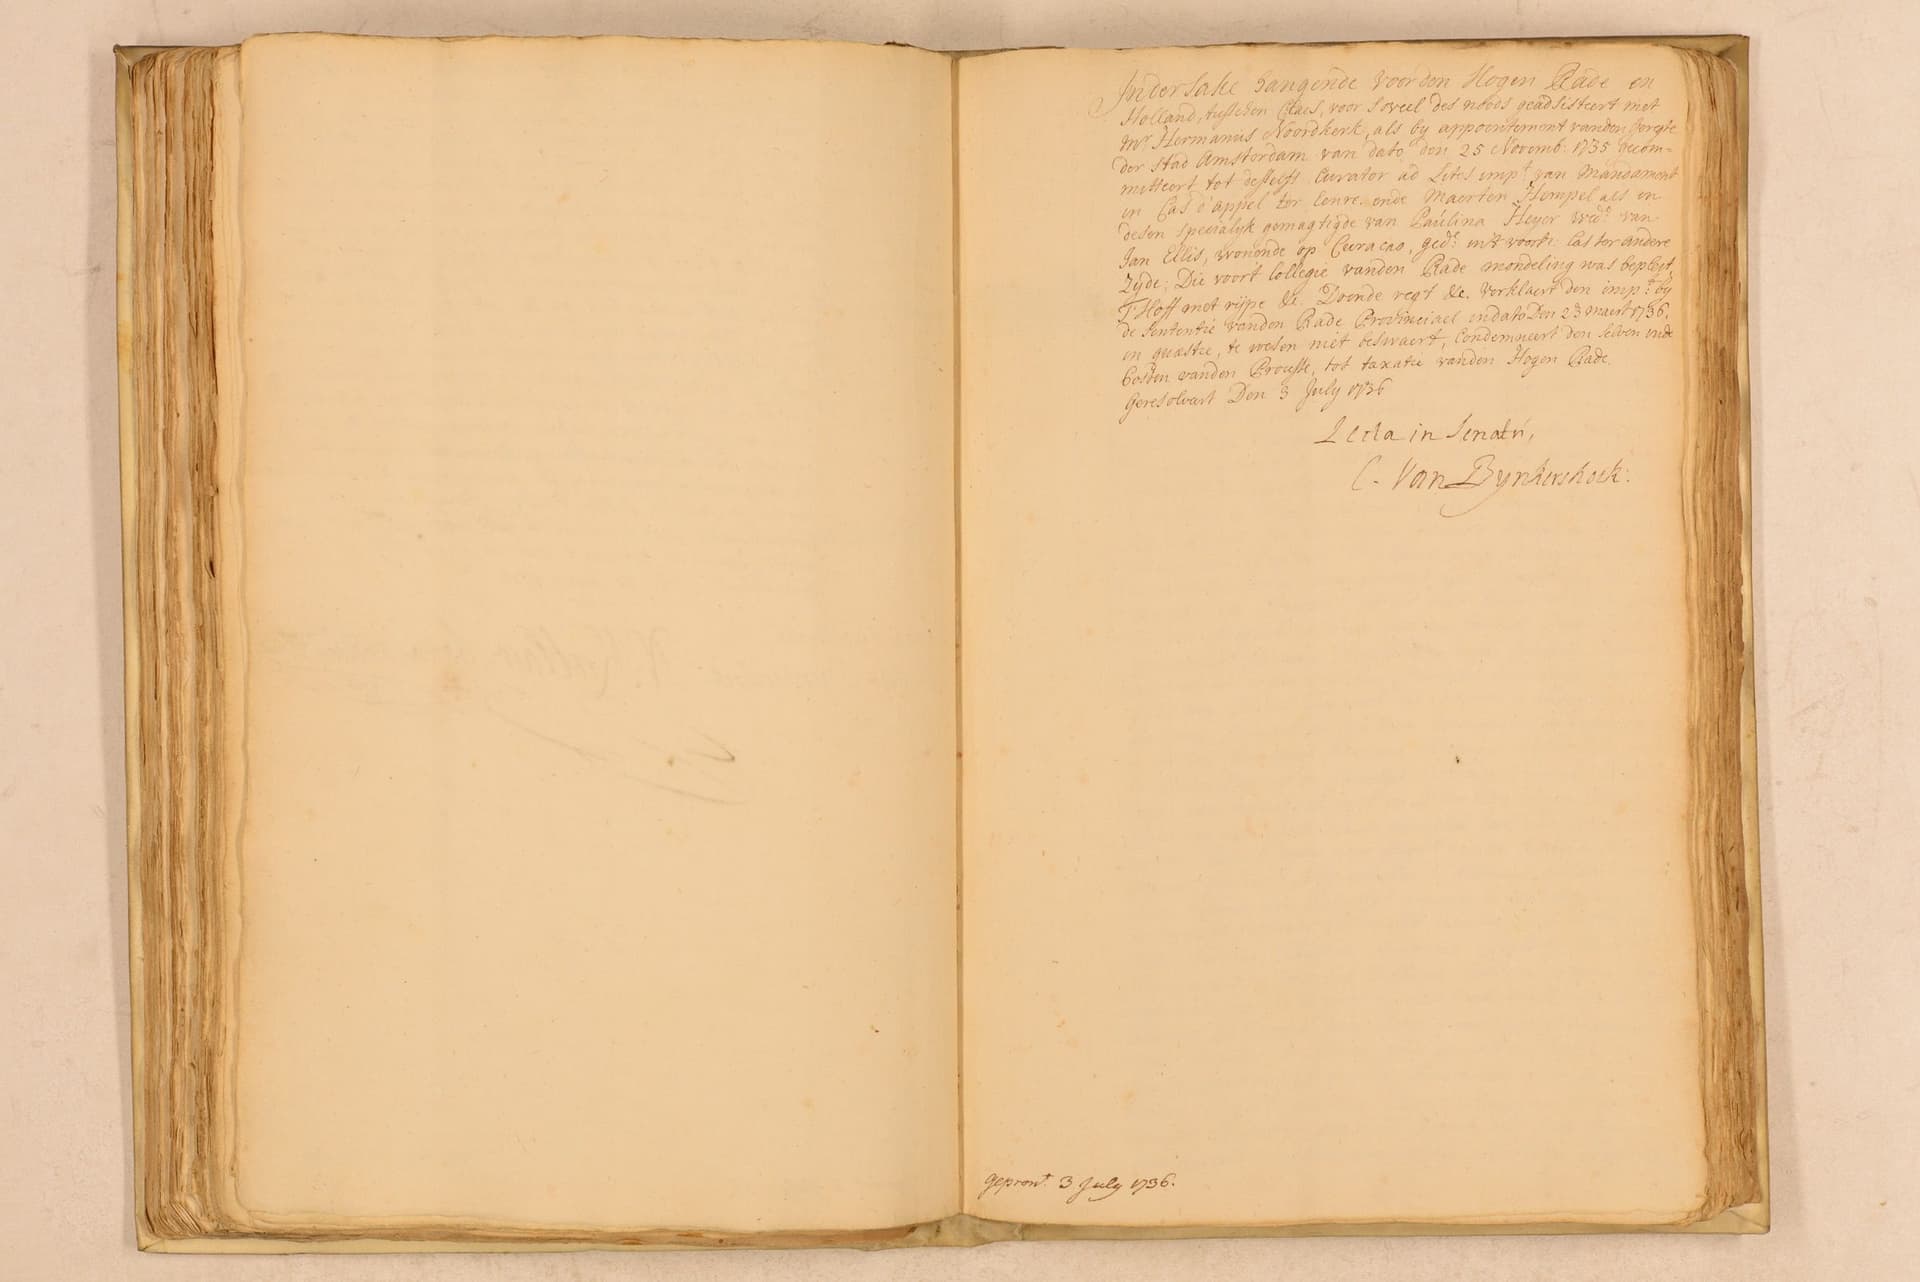 Inder sake hangende voor den Hogen Rade en
Holland, tusschen Claes, voor soveel des noods geadsisteert met
Mr. Hermanus Noordkerk, als by appoinctement vanden Geregte
der stad Amsterdam van dato den 25 Novemb: 1735 gecom=
mitteert tot desselfs Curator ad Lites imp.t van Mandament
in Cas d'appel ter eenre. ende Maerten Hempel als in
desen specialyk gemagtigde van Paulina Heyer wed.e van
Jan Ellis, wonende op Curacao, ged.e in't voorts: Cas ter andere
zyde; Die voort Collegie vanden Rade mondeling was bepleyt,
T'Hoff met rijpe &c. Doende regt &c. Verklaert den imp.t by
de Sententie vanden Rade Provinciael in dato Den 23 maert 1736,
in quæstie, te wesen niet beswaert, Condemneert den selven inde
Costen vanden Processe, tot taxatie vanden Hogen Rade.
Geresolveert Den 3 July 1736
Lecta in Senatú,
C. Van Bynkershoek.
gepron.t 3 July 1736.